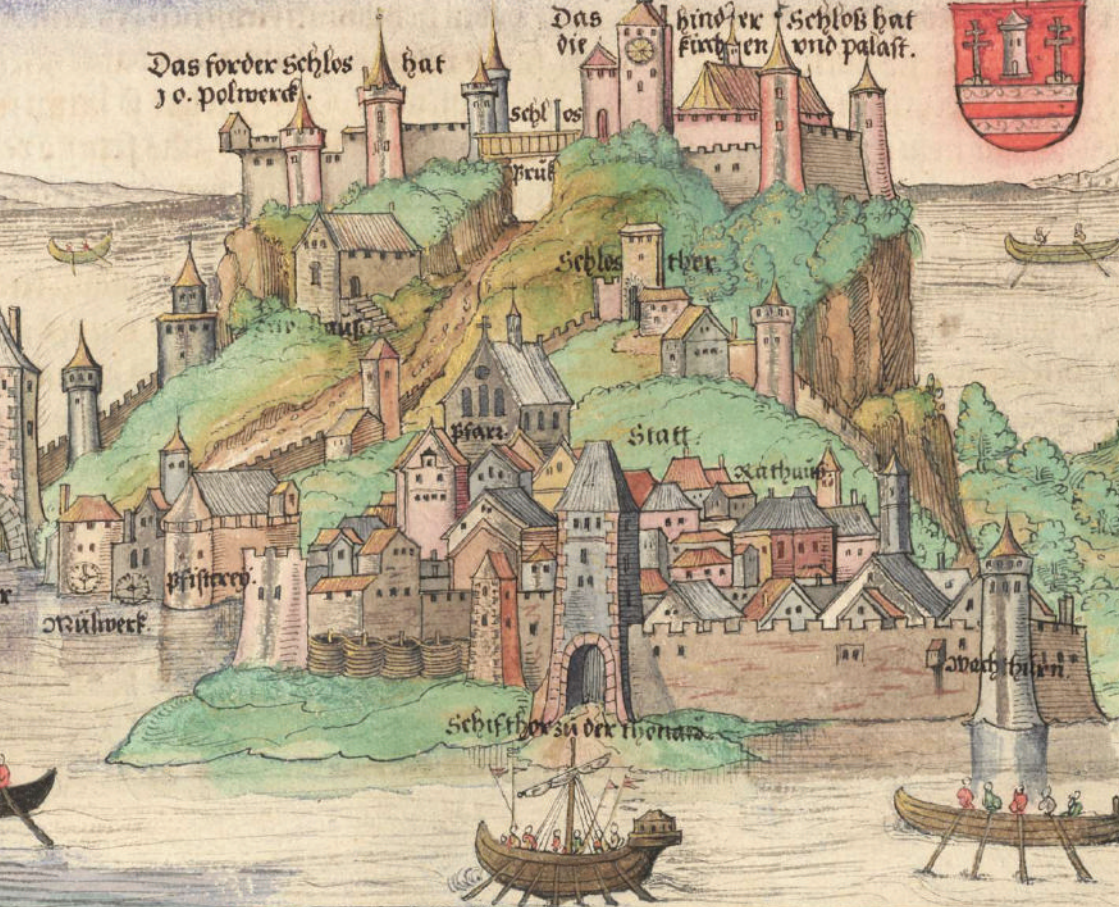 Das forder Schlos hat
10. Polwerck.
Das hinder Schloß hat
die kirchen vnd palast.
schlos
Bruk
Schlos thor
Pfarr.
Statt.
Rathaus
Pfisterey.
Mülwerk.
Wachthurn.
Schifthor zu der thonaw.